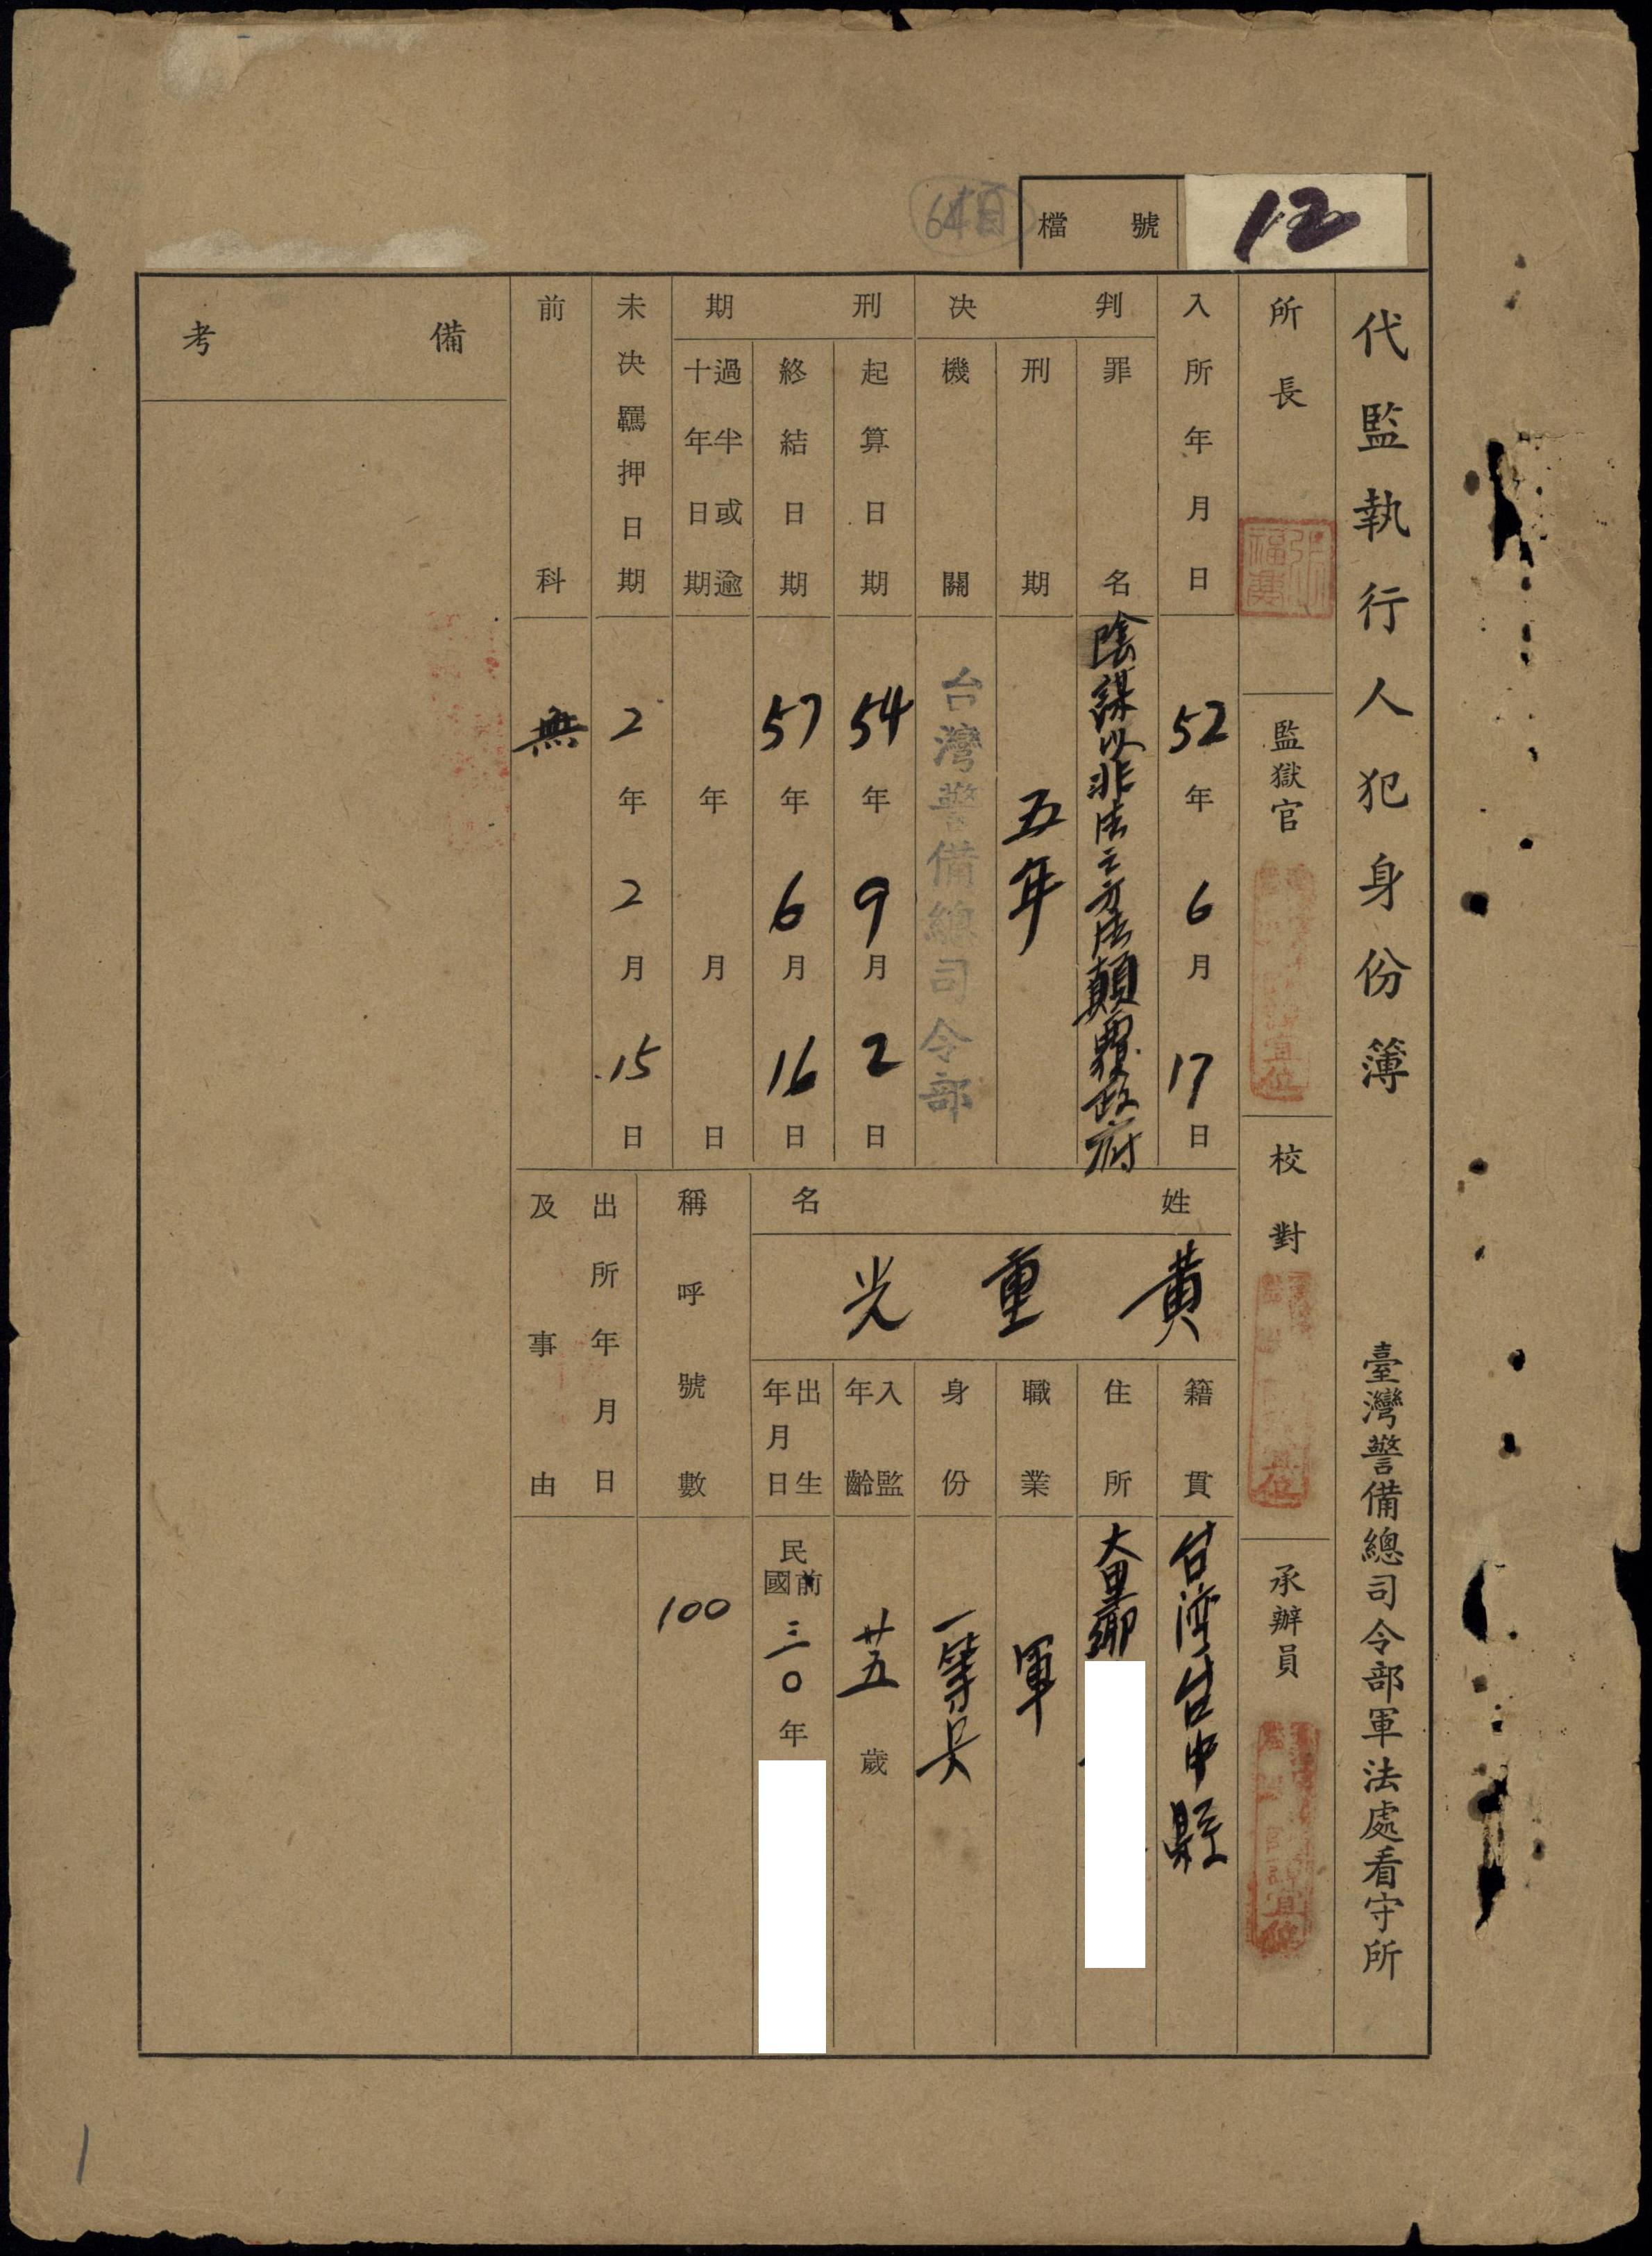 檔號 12
64頁
代監執行人犯身份簿 臺灣警備總司令部軍法處看守所
所長
監獄官
校對
承辦員
入所年月日 52年6月17日
判決
罪名 陰謀以非法之方法顛覆政府
刑期 五年
機關 台灣警備總司令部
刑期
起算日期 54年9月2日
終結日期 57年6月16日
過半或逾十年日期 年 月 日
未決羈押日期 2年2月15日
前科 無
姓名
黃重光
籍貫 台湾台中縣
住所 大里鄉
職業 軍
身份 一等兵
入監年齡 廿五歲
出生年月日 民國前 三〇年
稱呼號數 100
出所年月日及事由
備考
1